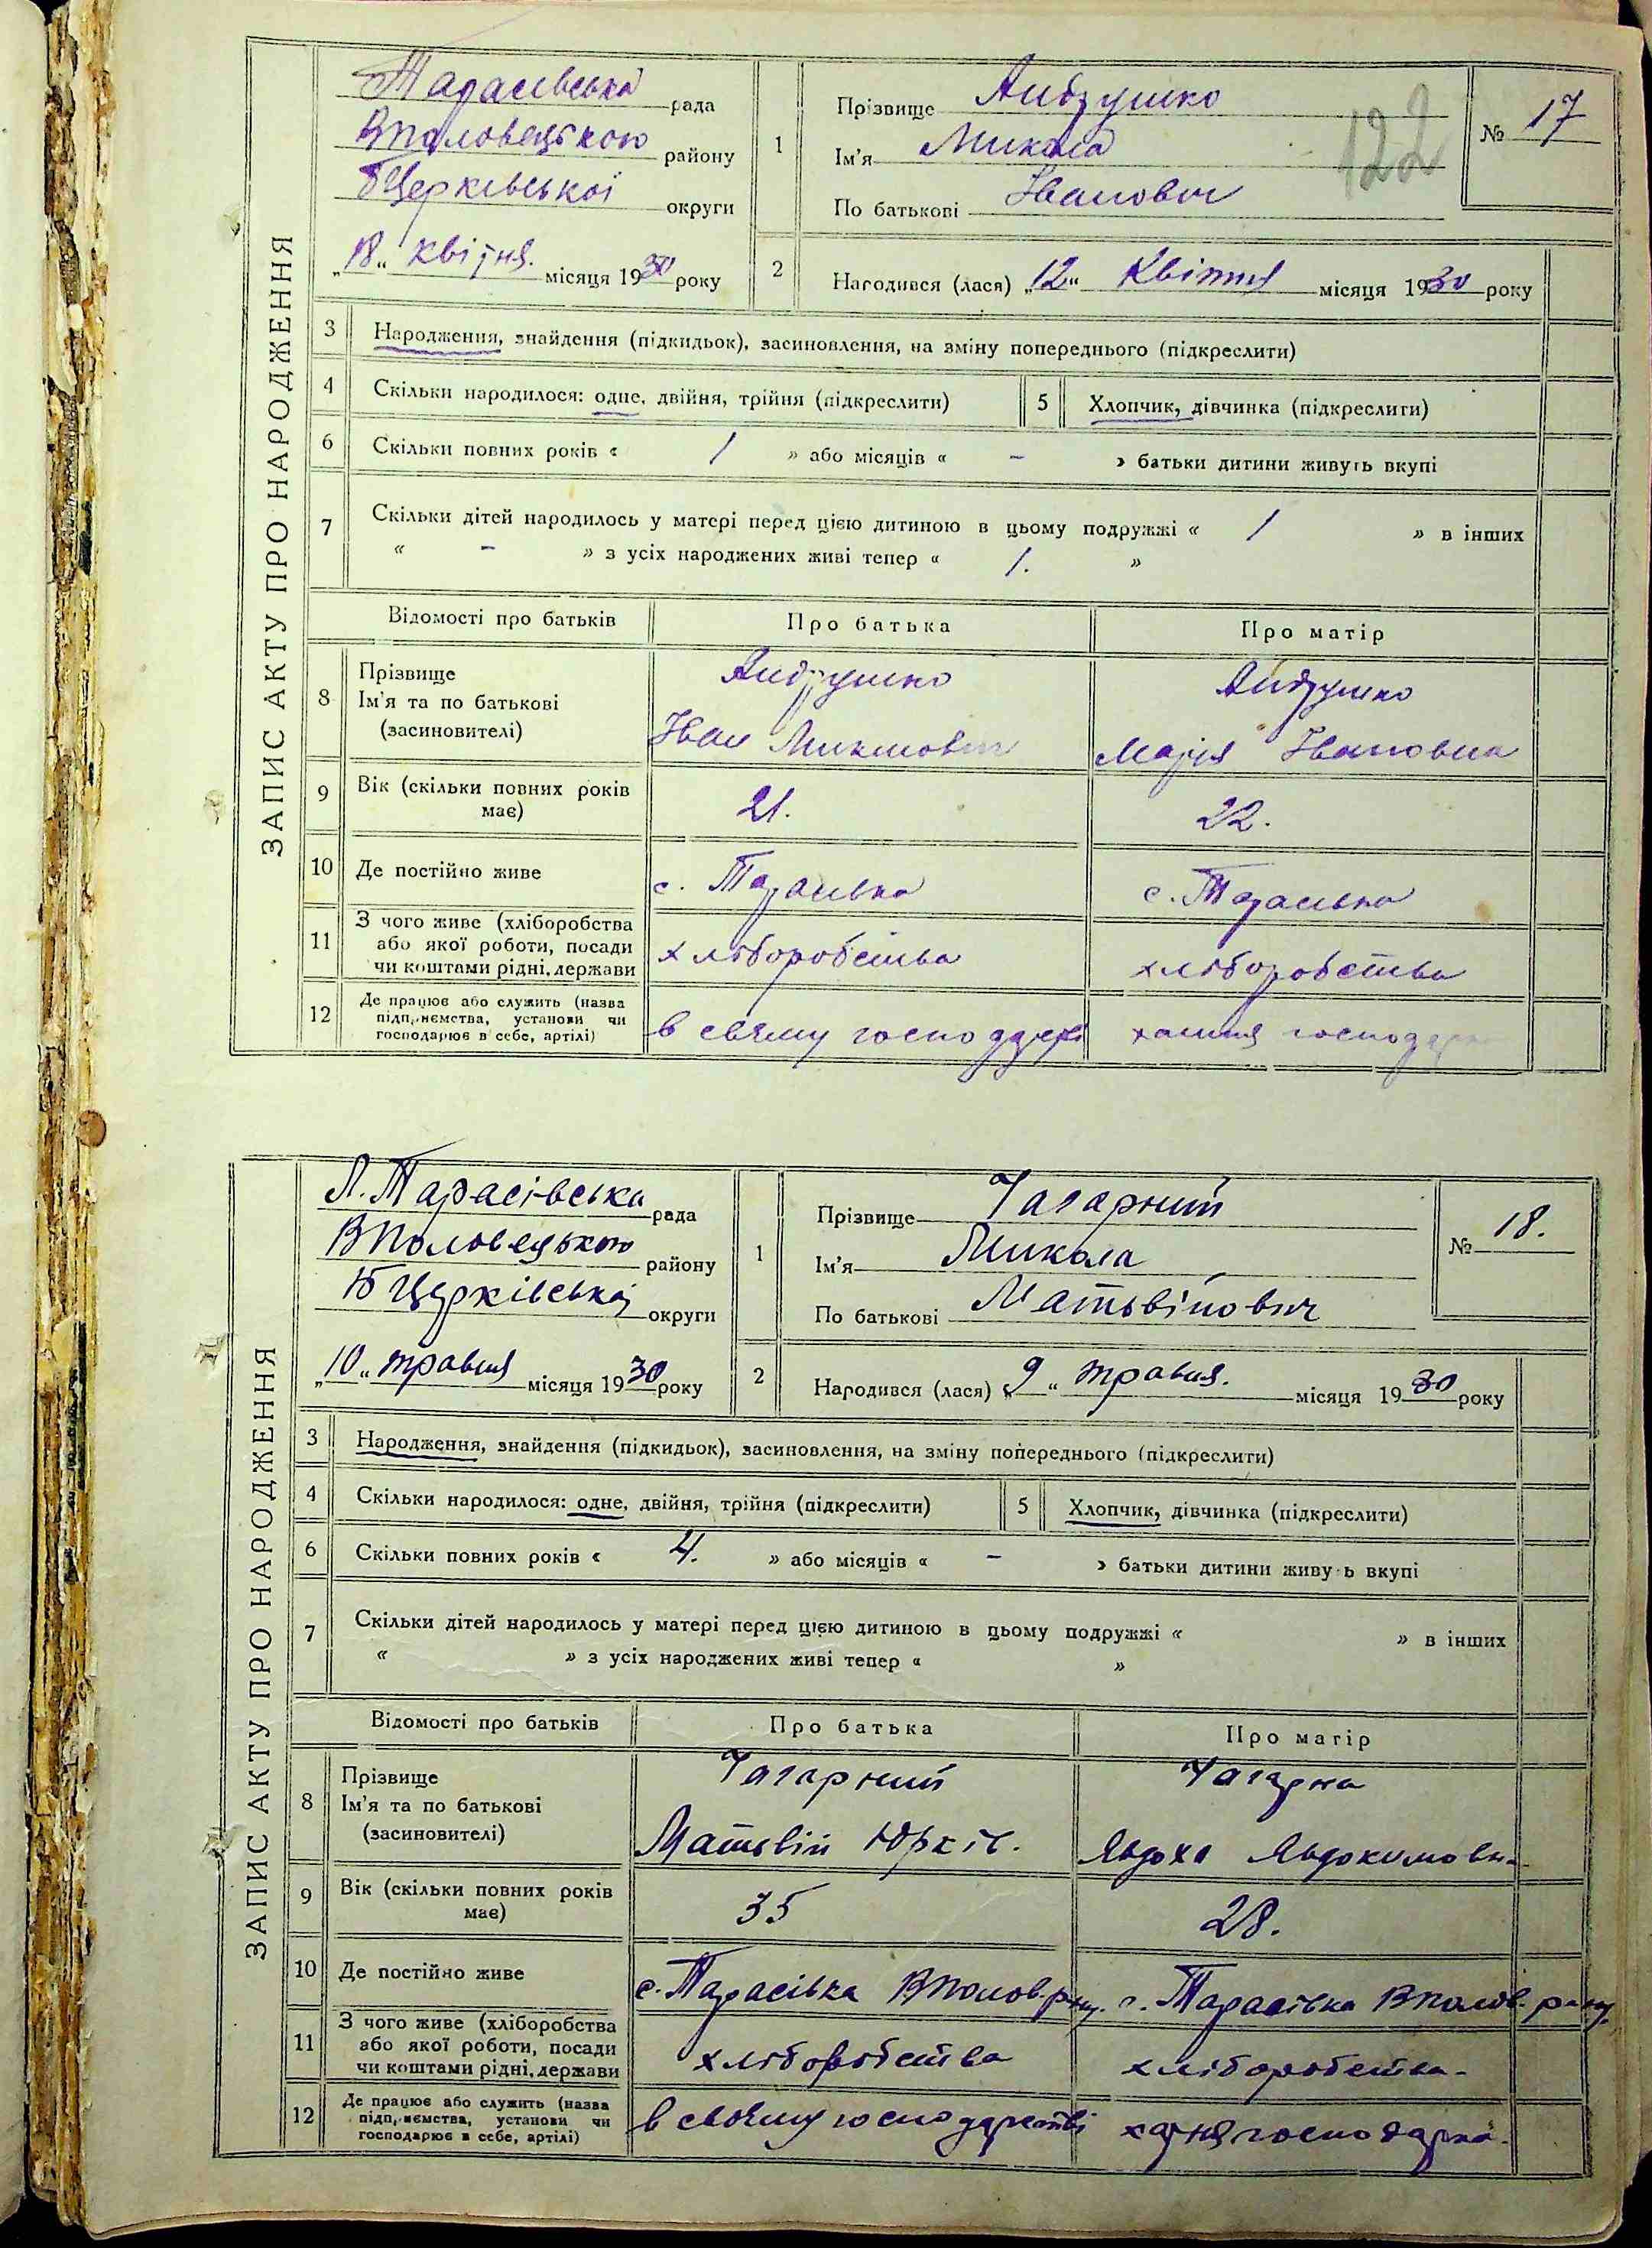 ЗАПИС АКТУ ПРО НАРОДЖЕННЯ
Тарасівська рада
ВПоловецького району
БЦерківської округи
„18“ квітня. місяця 1930 року
1
Прізвище Андрушко
Ім'я Микола
По батькові Іванович
122
№ 17
2
Народився (лася) „12“ Квітня місяця 1930 року
3 Народження, знайдення (підкидьок), засиновлення, на зміну попереднього (підкреслити)
4 Скільки народилося: одне, двійня, трійня (підкреслити)
5 Хлопчик, дівчинка (підкреслити)
6 Скільки повних років « 1 » або місяців « - » батьки дитини живуть вкупі
7 Скільки дітей народилось у матері перед цією дитиною в цьому подружжі « 1 » в інших
« - » з усіх народжених живі тепер « 1. »
Відомості про батьків Про батька Про матір
8
Прізвище Андрушко Андрушко
Ім'я та по батькові
(засиновителі) Іван Марія Івановна
9 Вік (скільки повних років
має) 21. 22.
10 Де постійно живе с. Тарасівка с. Тарасівка
11
З чого живе (хліборобства
або якої роботи, посади
чи коштами рідні, держави хліборобства хліборобства
12
Де працює або служить (назва
підприємства, установи чи
господарює в себе, артілі) в своему
ЗАПИС АКТУ ПРО НАРОДЖЕННЯ
Л. Тарасівська рада
ВПоловецького району
БЦерківської округи
„10“ травня місяця 1930 року
1
Прізвище Чагарний
Ім'я Микола
По батькові Матьвійович
№ 18.
2
Народився (лася) „9“ травня. місяця 1930 року
3 Народження, знайдення (підкидьок), засиновлення, на зміну попереднього (підкреслити)
4 Скільки народилося: одне, двійня, трійня (підкреслити)
5 Хлопчик, дівчинка (підкреслити)
6 Скільки повних років « 4. » або місяців « - » батьки дитини живу ь вкупі
7 Скільки дітей народилось у матері перед цією дитиною в цьому подружжі « » в інших
« » з усіх народжених живі тепер « »
Відомості про батьків Про батька Про матір
8
Прізвище Чагарний Чагарна
Ім'я та по батькові
(засиновителі) Матьвій Юрків. Явдоха Явдокимовн.
9 Вік (скільки повних років
має) 35 28.
10 Де постійно живе с. Тарасівка ВПолов. р-ну. с. Тарасівка ВПолов. р-ну.
11
З чого живе (хліборобства
або якої роботи, посади
чи коштами рідні, держави хліборобства хліборобства.
12
Де працює або служить (назва
підприємства, установи чи
господарює в себе, артілі) в своему господарстві хатня господарка.